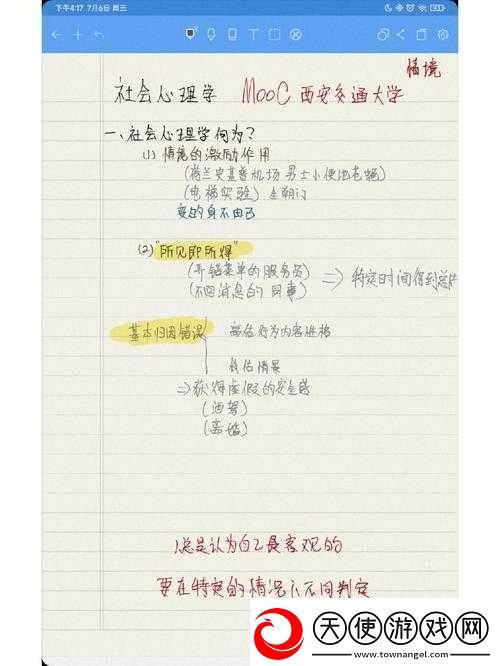 下午4:17 7月6日 周三
情境
社会心理学 MOOC 西安交通大学
一、社会心理学何为？
(1) 情境的激励作用
(荷兰史基普机场男士小便池苍蝇)
(电梯实验) 全朝门
变的身不由己
(2) "所见即所得"
(开错菜单的服务员)
(不回消息的同事)
=> 特定时间得到总
基本归因错误
高估行为内容性格
低估情景
=> 获得虚假的安全感
(酒驾)
(离婚)
总是认为自己是客观的
要在特定的情况下不同判定
天使游戏网
www.townangel.com